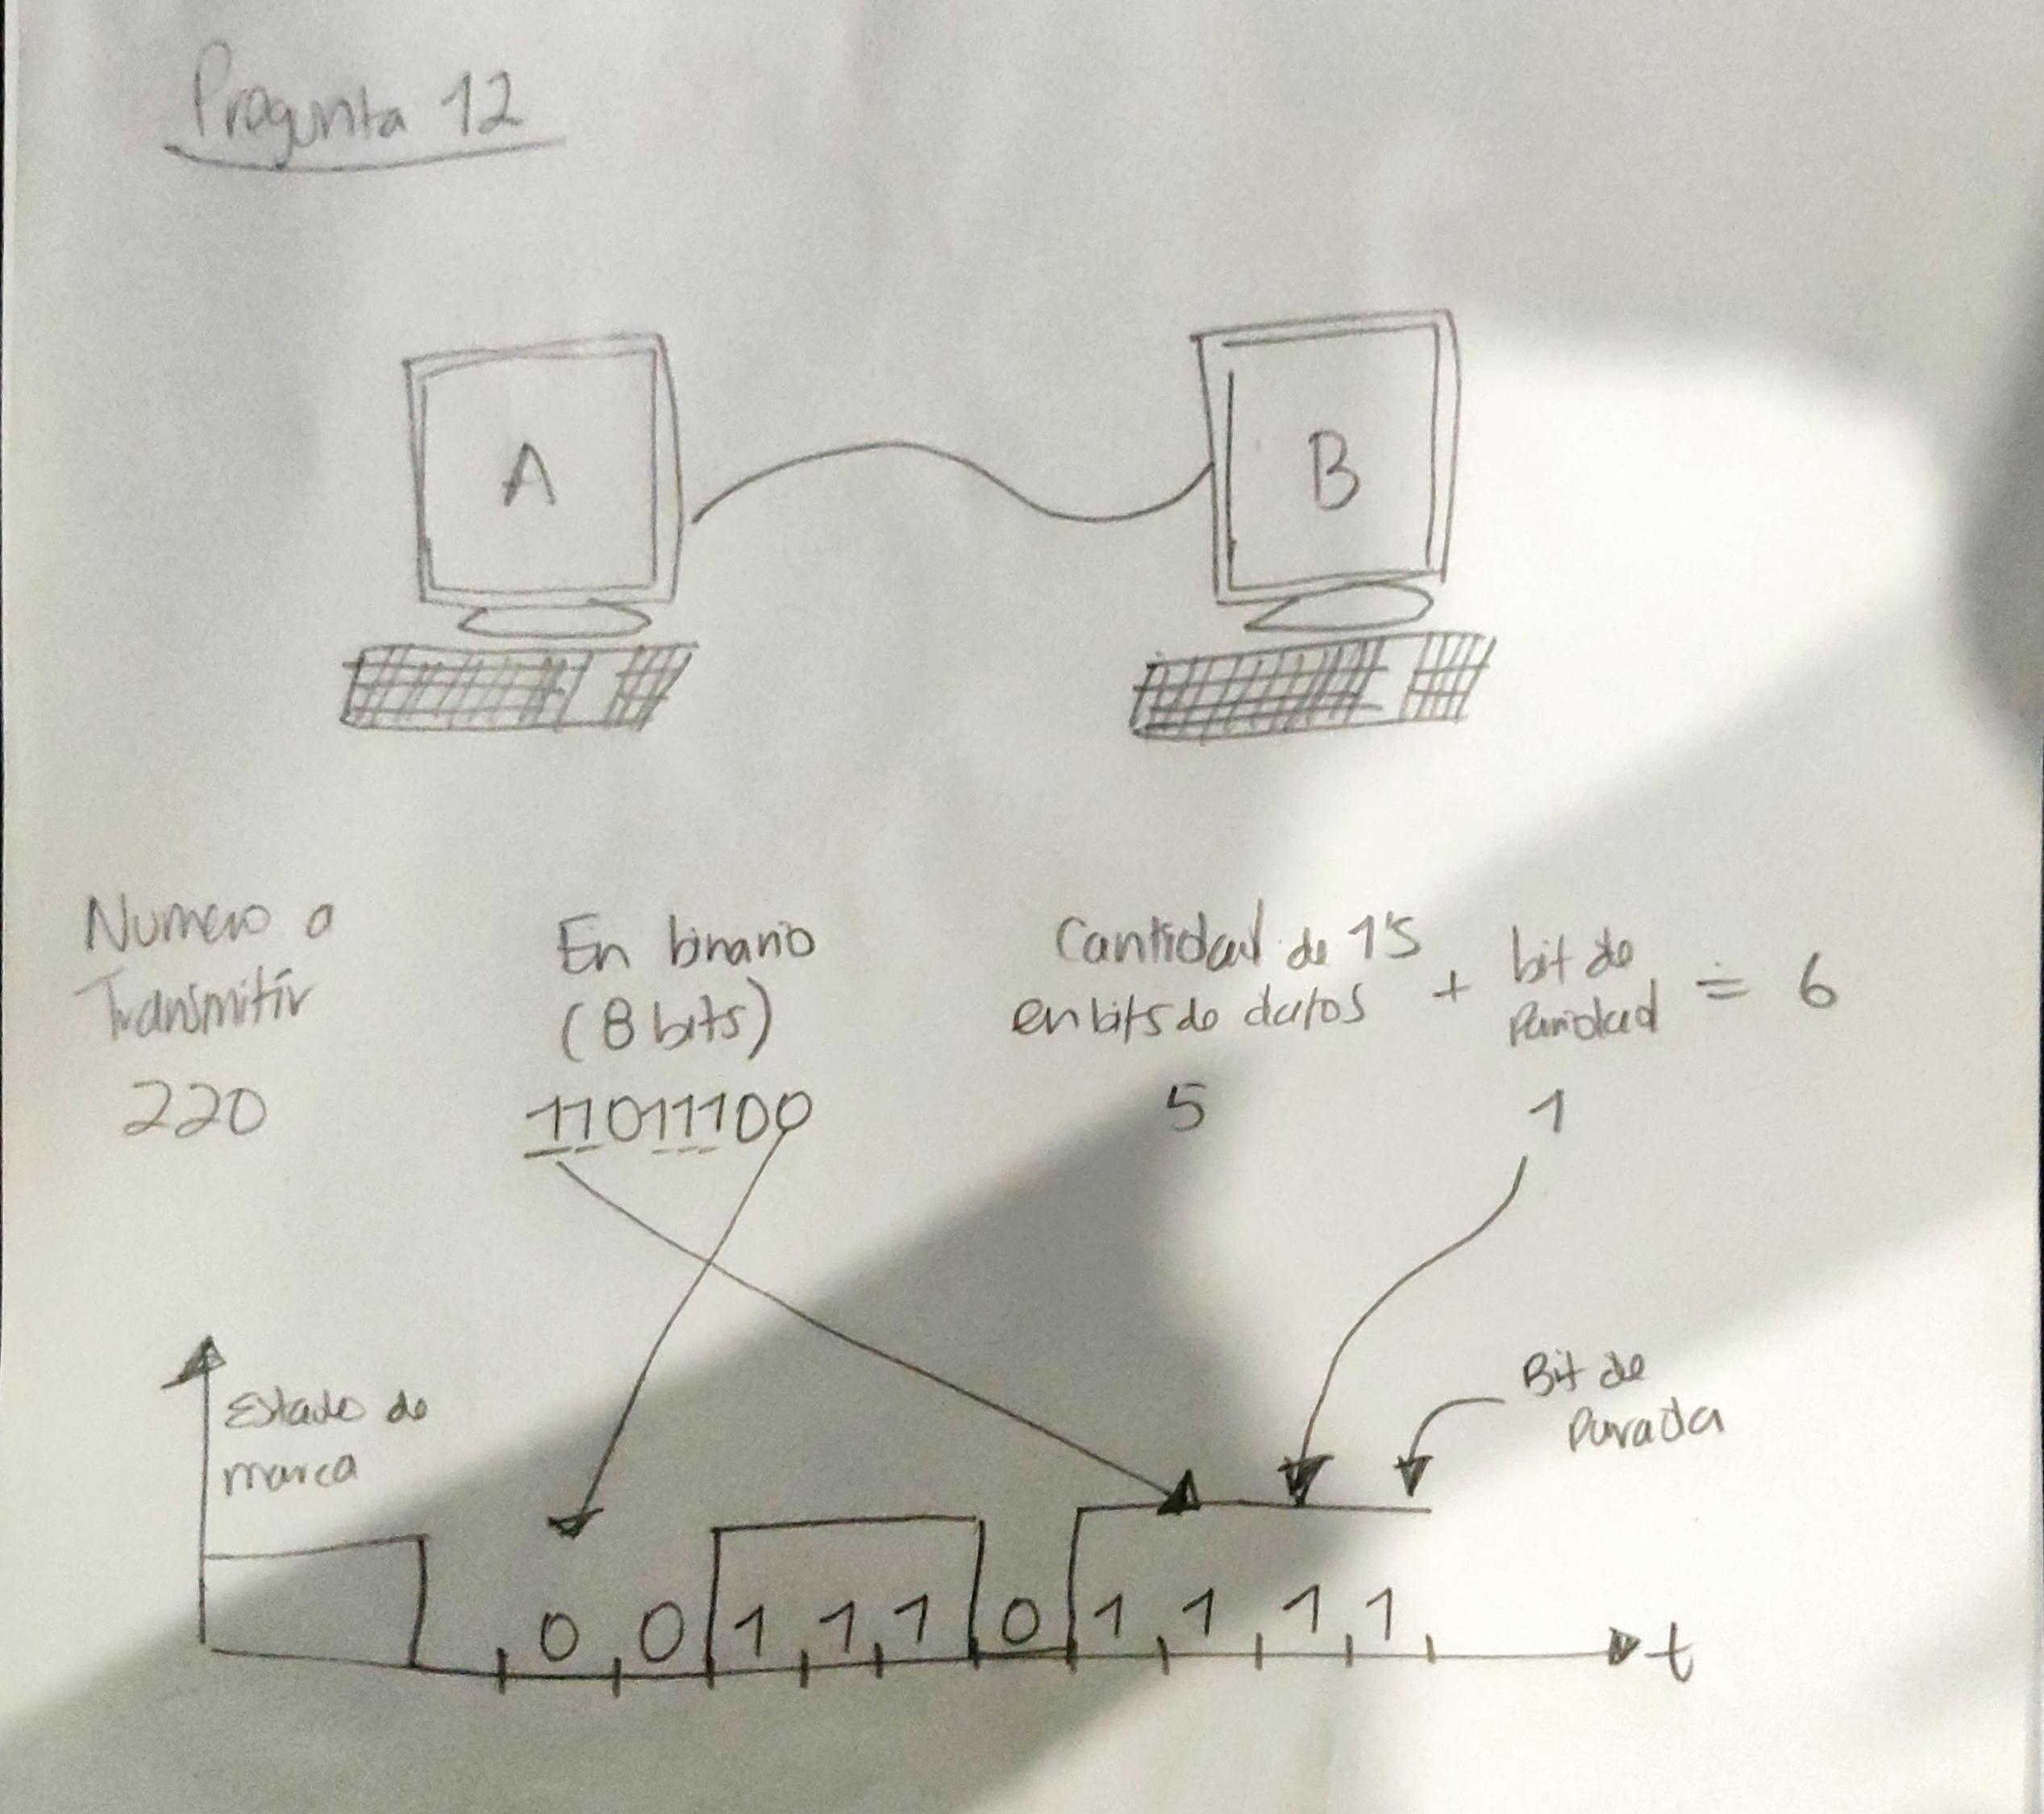 Pregunta 12
A
B
Numero a
Transmitir
220
En binario
(8 bits)
11011100
Cantidad de 1's
en bits de datos
5
+
bit de
Paridad
1
= 6
Estado de
marca
Bit de
Parada
0 0 1 1 1 0 1 1 1 1
t